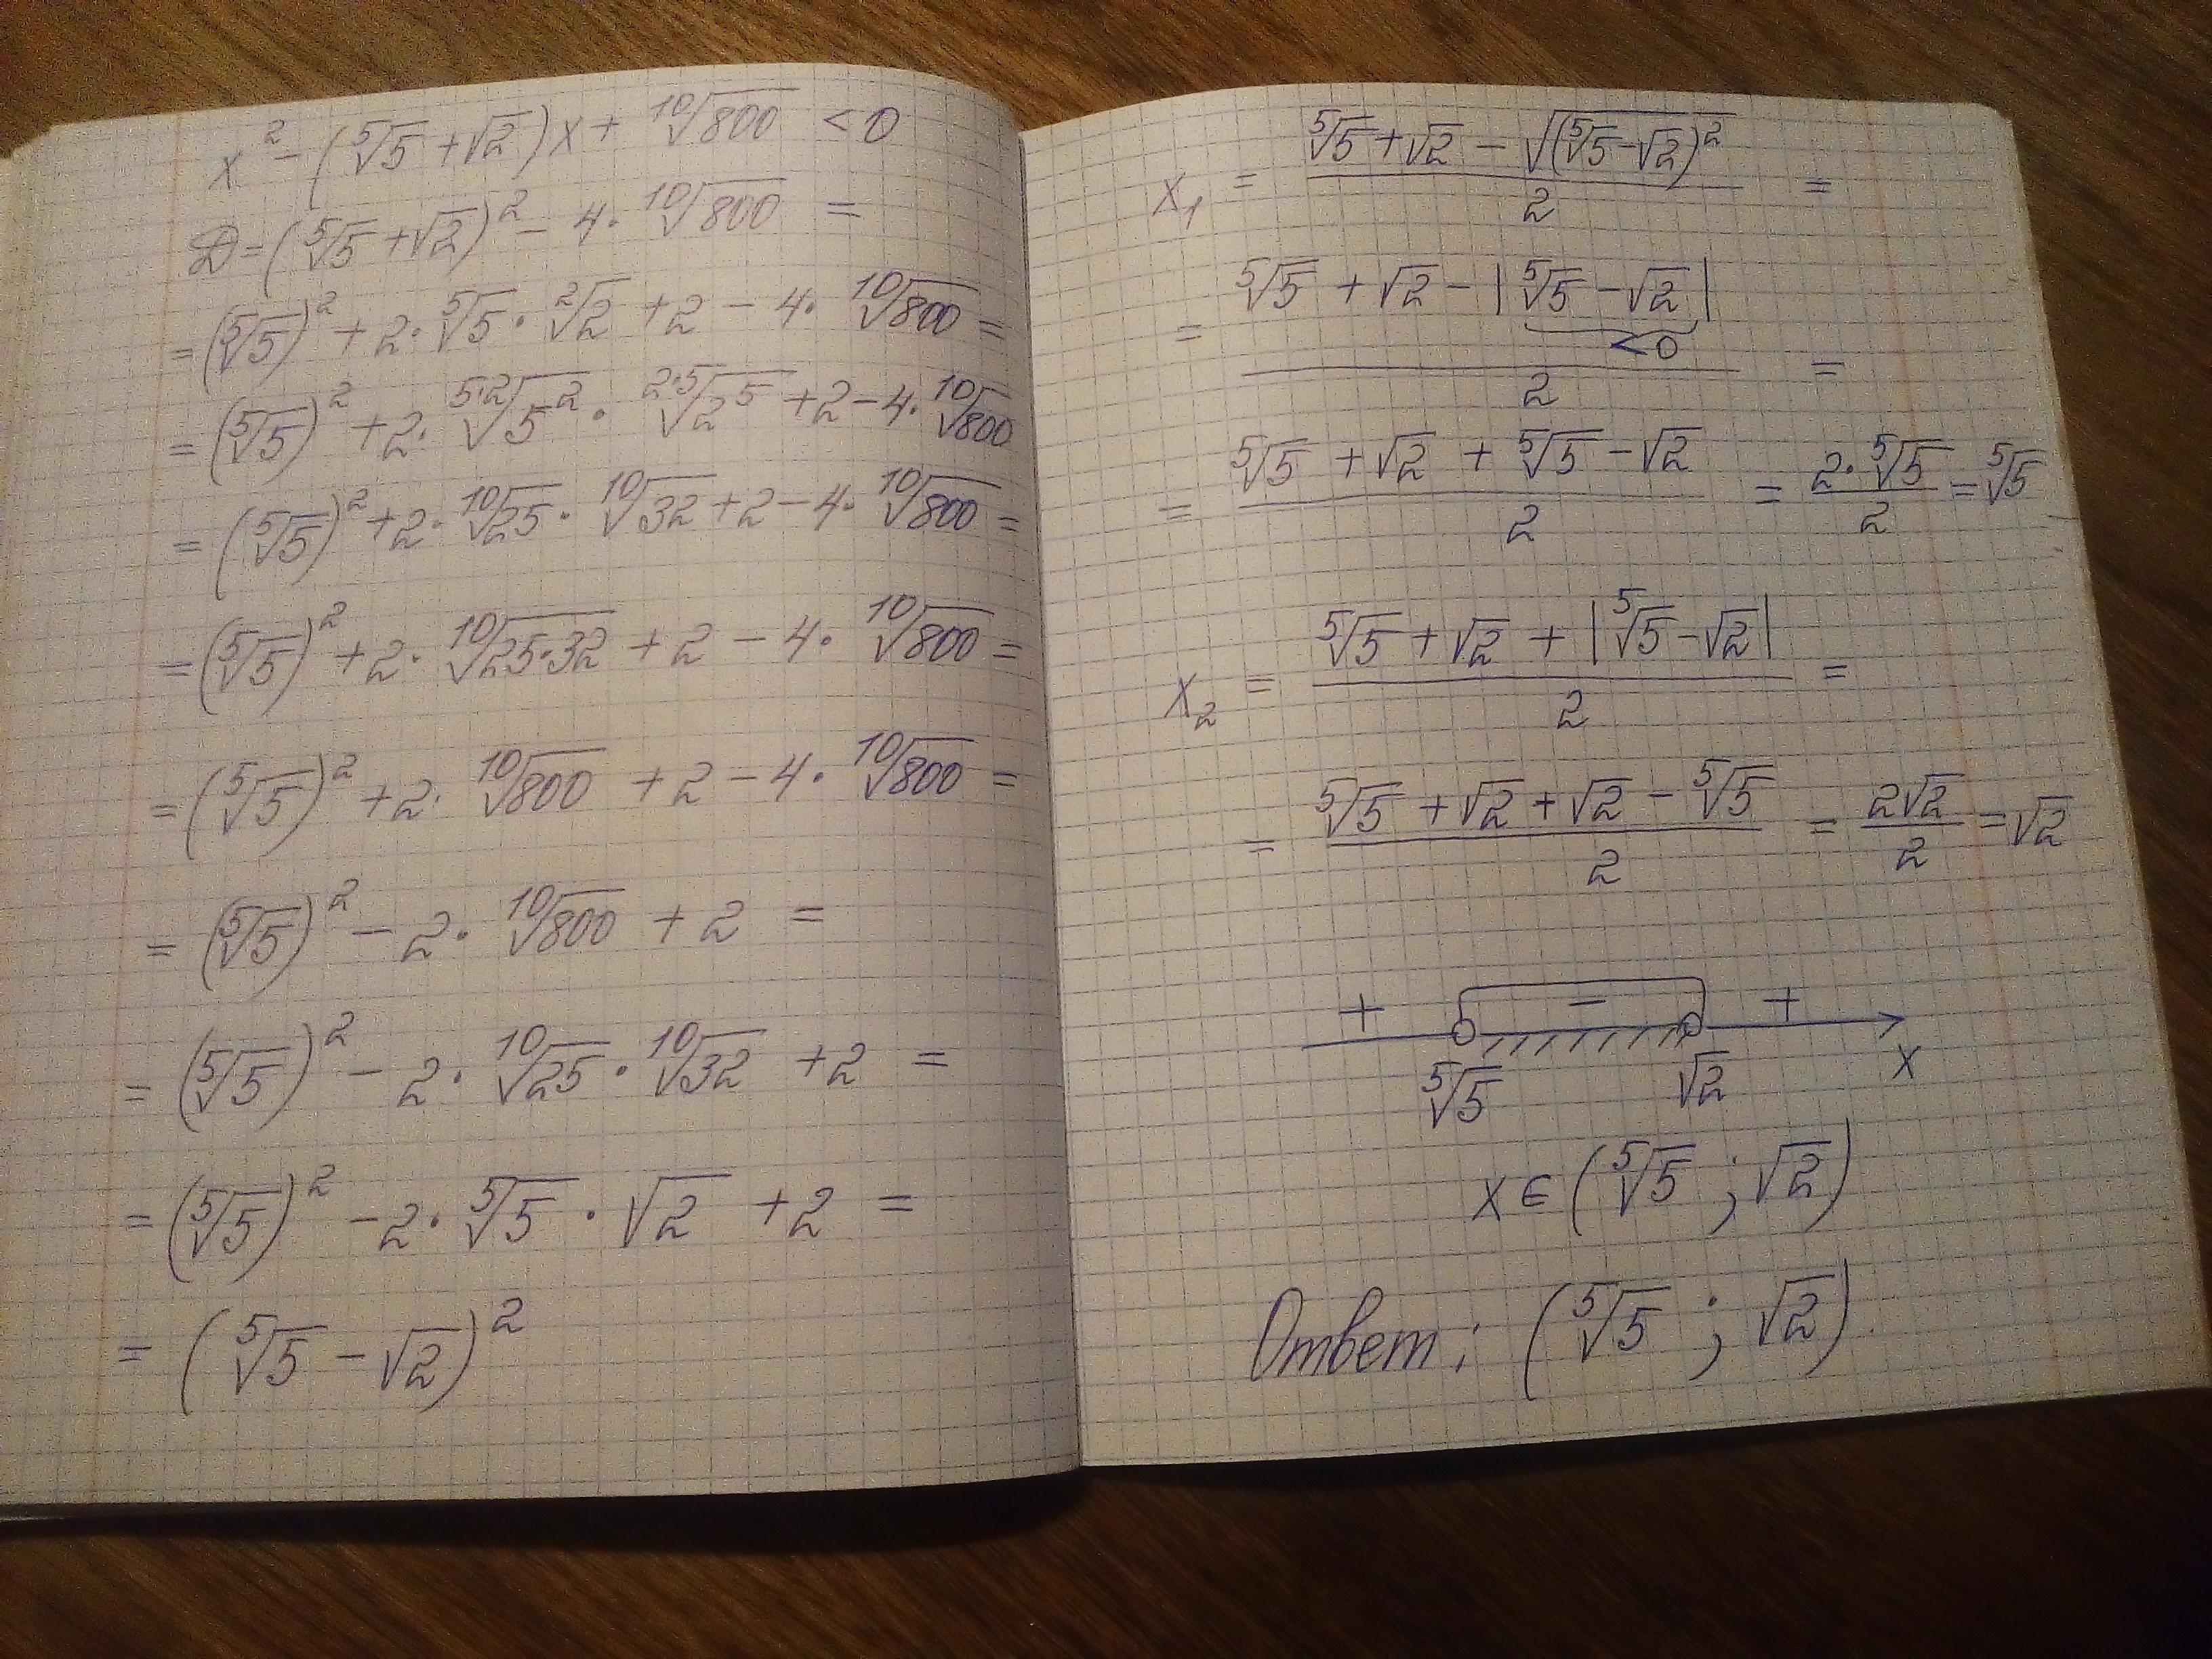 x² - (⁵√5 + √2)x + ¹⁰√800 < 0
D = (⁵√5 + √2)² - 4 · ¹⁰√800 =
= (⁵√5)² + 2 · ⁵√5 · ²√2 + 2 - 4 · ¹⁰√800 =
= (⁵√5)² + 2 · ⁵·²√5² · ²·⁵√2⁵ + 2 - 4 · ¹⁰√800
= (⁵√5)² + 2 · ¹⁰√25 · ¹⁰√32 + 2 - 4 · ¹⁰√800 =
= (⁵√5)² + 2 · ¹⁰√(25·32) + 2 - 4 · ¹⁰√800 =
= (⁵√5)² + 2 · ¹⁰√800 + 2 - 4 · ¹⁰√800 =
= (⁵√5)² - 2 · ¹⁰√800 + 2 =
= (⁵√5)² - 2 · ¹⁰√25 · ¹⁰√32 + 2 =
= (⁵√5)² - 2 · ⁵√5 · √2 + 2 =
= (⁵√5 - √2)²
x₁ = (⁵√5 + √2 - √((⁵√5 - √2)²)) / 2 =
= (⁵√5 + √2 - |⁵√5 - √2|) / 2 =
< 0
= (⁵√5 + √2 + ⁵√5 - √2) / 2 = (2 · ⁵√5) / 2 = ⁵√5
x₂ = (⁵√5 + √2 + |⁵√5 - √2|) / 2 =
= (⁵√5 + √2 + √2 - ⁵√5) / 2 = 2√2 / 2 = √2
+ - +
⁵√5 √2 x
x ∈ (⁵√5 ; √2)
Ответ: (⁵√5 ; √2).